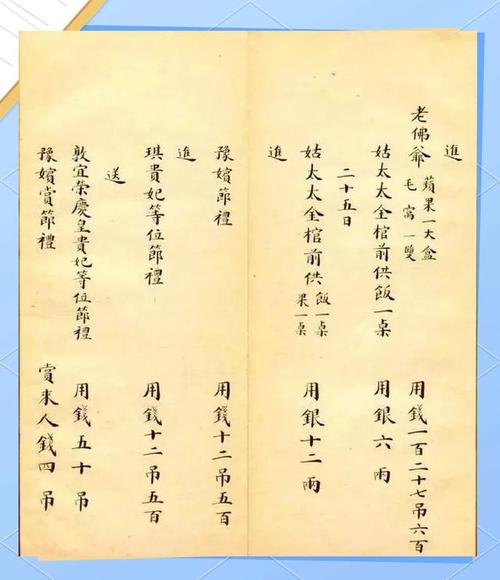 進
老佛爺 蘋果一大盒 毛窩一雙 用錢一百二十七吊六百
姑太太金棺前供飯一桌 用銀六兩
二十五日
姑太太金棺前供 飯一桌 果一桌 用銀十二兩
進
豫嬪節禮 用錢十二吊五百
進
琪貴妃等位節禮 用錢十二吊五百
送
敦宜榮慶皇貴妃等位節禮 用錢五十吊
豫嬪賞節禮 賞來人錢四吊